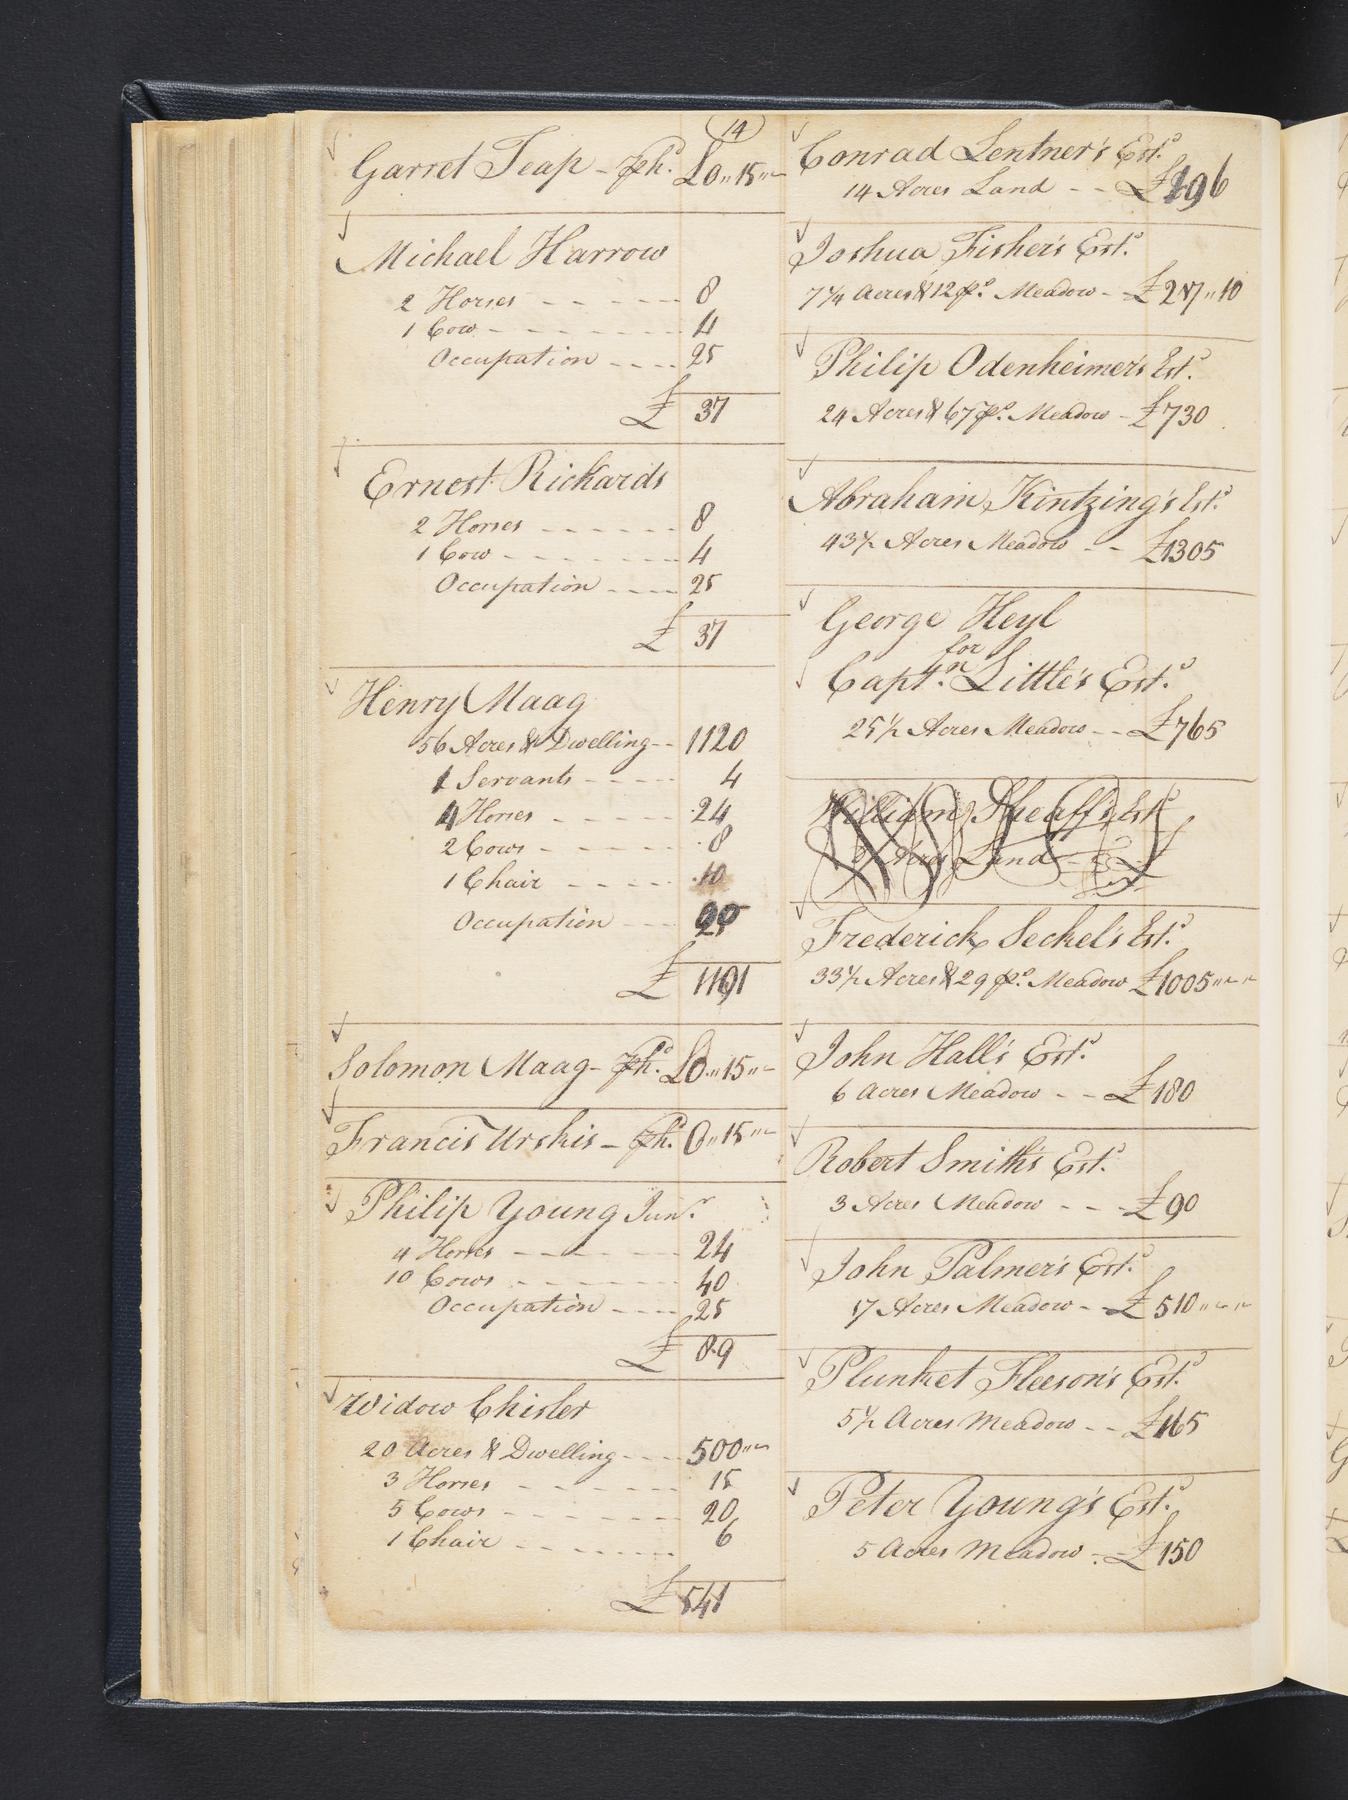 14
Garret Teap - ph.d £0,,15,,-
Michael Harrow
2 Horses - - - - - 8
1 Cow - - - - - - 4
Occupation - - - - 25
£ 37
Ernest Rickards
2 Horses - - - - - - 8
1 Cow - - - - - - - 4
Occupation - - - - 25
£ 37
Henry Maag
56 Acres & Dwelling - - 1120
1 Servants - - - - - 4
4 Horses - - - - - 24
2 Cows - - - - - 8
1 Chair - - - - - 10
Occupation - - - 25
£ 1191
Solomon Maag - ph.d £0,,15,,-
Francis Urskis - ph.d 0,,15,,-
Philip Young Jun.r
4 Horses - - - - - 24
10 Cows - - - - - - 40
Occupation - - - - 25
£ 89
Widow Chisler
20 Acres & Dwelling - - - - 500,,-
3 Horses - - - - - - 15
5 Cows - - - - - - - 20
1 Chair - - - - - - - 6
£541
Conrad Lentner's Est.d
14 Acres Land - - £196
Joshua Fisher's Est.d
7 1/4 Acres & 12 p.s Meadow - £217,,10
Philip Odenheimer's Est.d
24 Acres & 67 p.s Meadow - £730
Abraham Kintzing's Est.d
43 1/2 Acres Meadow - - £1305
George Heyl
for
Capt.n Little's Est.d
25 1/2 Acres Meadow - - £765
William Sheaff's Est.d
Acres Land - - £
Frederick Seckel's Est.d
33 1/2 Acres & 29 p.s Meadow £1005,,-,,-
John Hall's Est.d
6 Acres Meadow - - £180
Robert Smith's Est.d
3 Acres Meadow - - - £90
John Palmer's Est.d
17 Acres Meadow - - £510,,-,,-
Plunket Fleeson's Est.d
5 1/2 Acres Meadow - - £165
Peter Young's Est.d
5 Acres Meadow - - £150